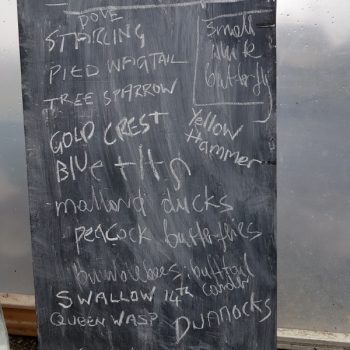 DOVE
STARLING
PIED WAGTAIL
TREE SPARROW
Small
white
butterfly
GOLD CREST
Yellow
Hammer
BLue tits
mallard ducks
PEACOCK butterflies
bumblebees: bufftail
SWALLOW 14th
QUEEN WASP
DUNNOCKS